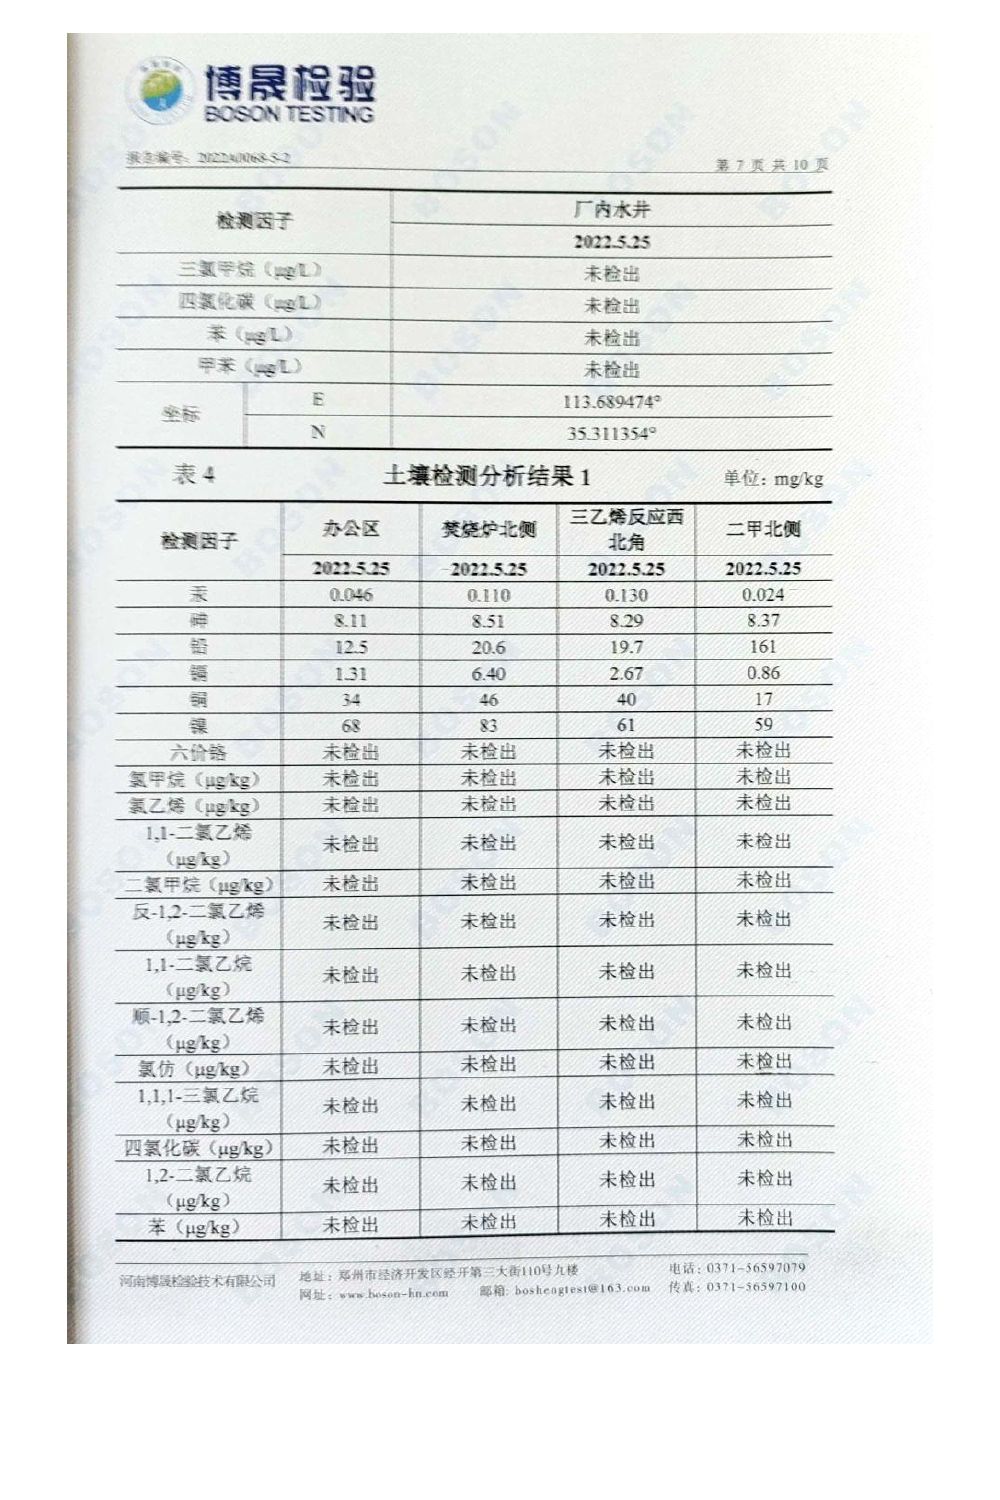 博晟检验
BOSON TESTING
报告编号：2022A0068-5-2 第 7 页 共 10 页
检测因子 厂内水井
2022.5.25
三氯甲烷（μg/L） 未检出
四氯化碳（μg/L） 未检出
苯（μg/L） 未检出
甲苯（μg/L） 未检出
坐标 E 113.689474°
N 35.311354°
表 4 土壤检测分析结果 1 单位：mg/kg
检测因子 办公区 焚烧炉北侧 三乙烯反应西北角 二甲北侧
2022.5.25 2022.5.25 2022.5.25 2022.5.25
汞 0.046 0.110 0.130 0.024
砷 8.11 8.51 8.29 8.37
铅 12.5 20.6 19.7 161
镉 1.31 6.40 2.67 0.86
铜 34 46 40 17
镍 68 83 61 59
六价铬 未检出 未检出 未检出 未检出
氯甲烷（μg/kg） 未检出 未检出 未检出 未检出
氯乙烯（μg/kg） 未检出 未检出 未检出 未检出
1,1-二氯乙烯（μg/kg） 未检出 未检出 未检出 未检出
二氯甲烷（μg/kg） 未检出 未检出 未检出 未检出
反-1,2-二氯乙烯（μg/kg） 未检出 未检出 未检出 未检出
1,1-二氯乙烷（μg/kg） 未检出 未检出 未检出 未检出
顺-1,2-二氯乙烯（μg/kg） 未检出 未检出 未检出 未检出
氯仿（μg/kg） 未检出 未检出 未检出 未检出
1,1,1-三氯乙烷（μg/kg） 未检出 未检出 未检出 未检出
四氯化碳（μg/kg） 未检出 未检出 未检出 未检出
1,2-二氯乙烷（μg/kg） 未检出 未检出 未检出 未检出
苯（μg/kg） 未检出 未检出 未检出 未检出
河南博晟检验技术有限公司 地址：郑州市经济开发区经开第三大街110号九楼 电话：0371-56597079
网址：www.boson-hn.com 邮箱：boshengtest@163.com 传真：0371-56597100